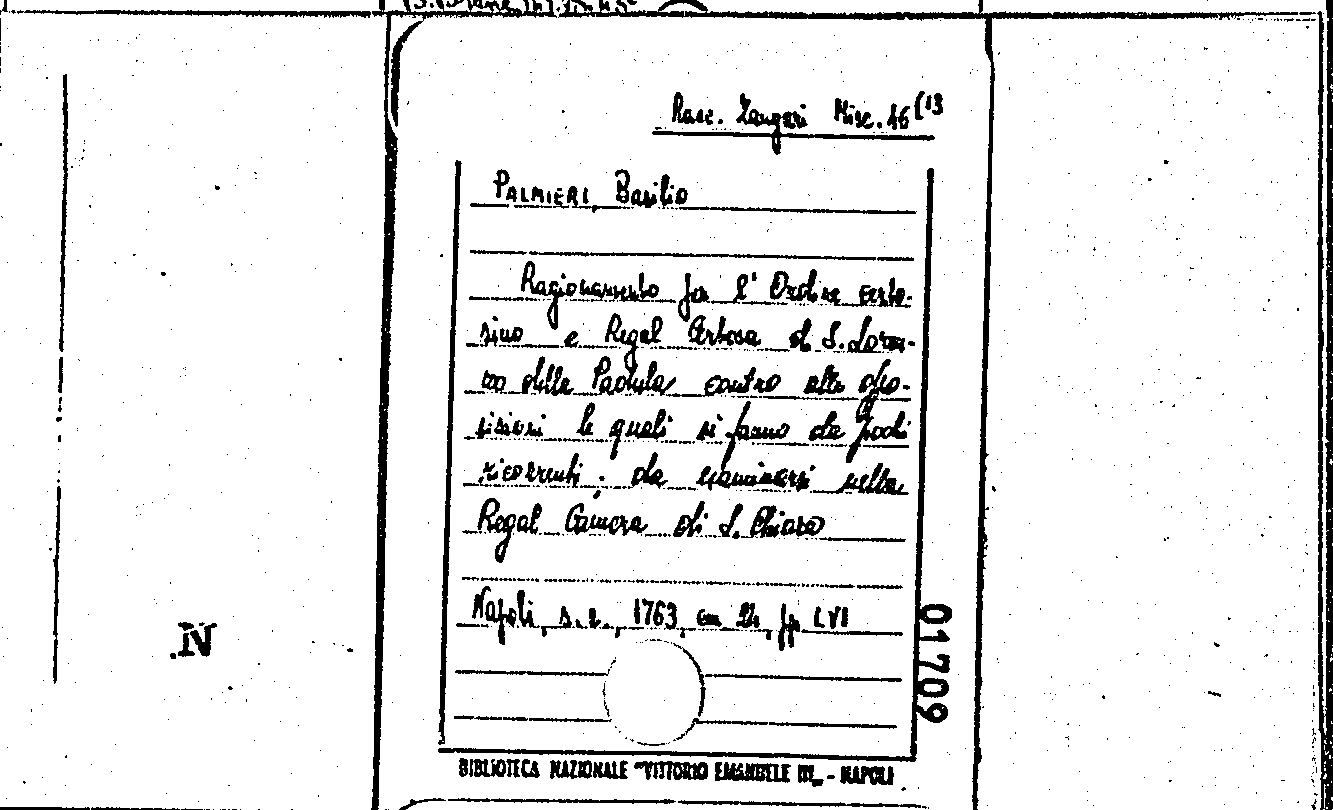 Racc. Zangari Misc. 46 (13
PALMIERI, Basilio
Ragionamento per l'Ordine certo-
sino e Regal Certosa di S. Loren-
zo della Padula contro alle oppo-
sizioni le quali si fanno da pochi
ricorrenti; da esaminarsi nella
Regal Camera di S. Chiara
Napoli, s.e., 1763, cm 24, pp LVI
01709
.N
BIBLIOTECA NAZIONALE "VITTORIO EMANUELE III„ - NAPOLI